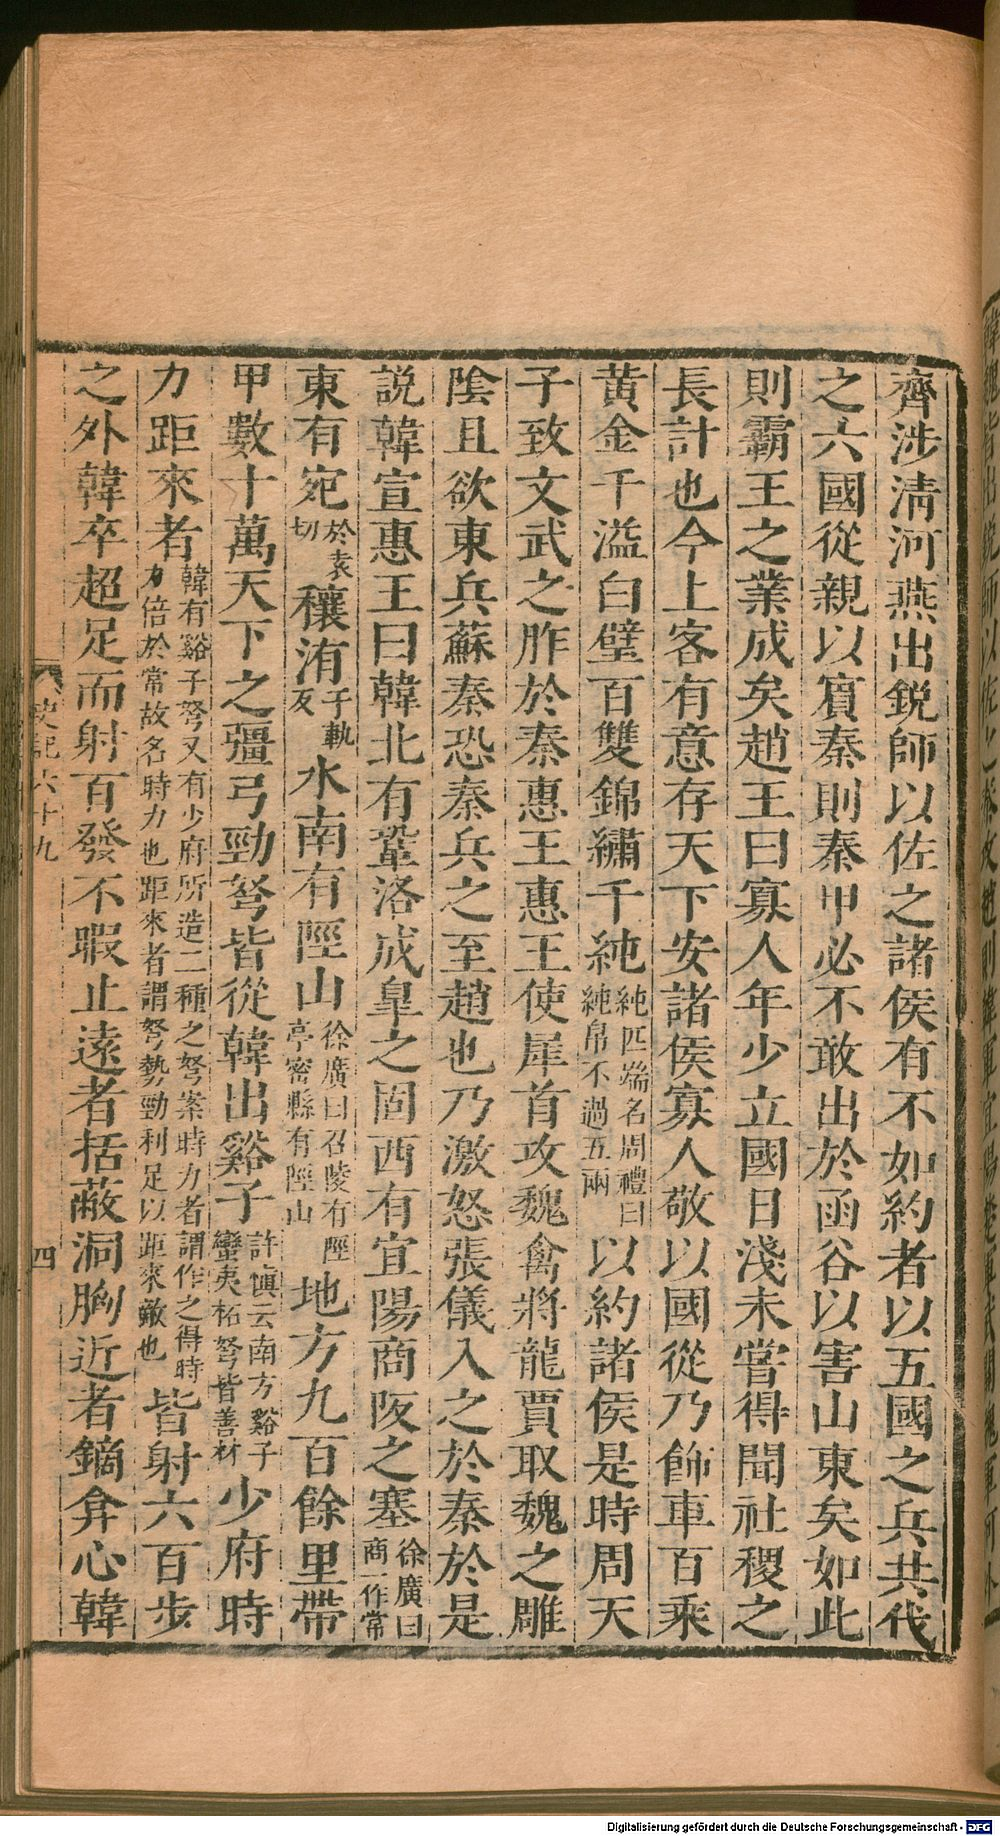 齊涉清河燕出銳師以佐之諸侯有不如約者以五國之兵共伐
之六國從親以賓秦則秦甲必不敢出於函谷以害山東矣如此
則霸王之業成矣趙王曰寡人年少立國日淺未嘗得聞社稷之
長計也今上客有意存天下安諸侯寡人敬以國從乃飾車百乘
黃金千溢白璧百雙錦繡千純純匹端名周禮曰純帛不過五兩以約諸侯是時周天
子致文武之胙於秦惠王惠王使犀首攻魏禽將龍賈取魏之雕
陰且欲東兵蘇秦恐秦兵之至趙也乃激怒張儀入之於秦於是
說韓宣惠王曰韓北有鞏洛成皐之固西有宜陽商阪之塞徐廣曰商一作常
東有宛於袁切穰洧于軌反水南有陘山徐廣曰召陵有陘亭密縣有陘山地方九百餘里帶
甲數十萬天下之彊弓勁弩皆從韓出谿子許愼云南方谿子蠻夷柘弩皆善材少府時
力距來者韓有谿子弩又有少府所造二種之弩案時力者謂作之得時力倍於常故名時力也距來者謂弩勢勁利足以距來敵也皆射六百步
之外韓卒超足而射百發不暇止遠者括蔽洞胸近者鏑弇心韓
史記六十九
四
Digitalisierung gefördert durch die Deutsche Forschungsgemeinschaft - DFG